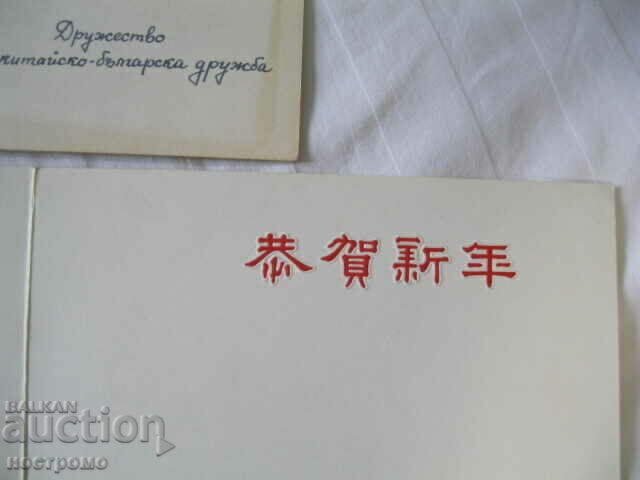 Дружество
китайско-българска дружба
恭賀新年
BALKAN
auction
ностромо